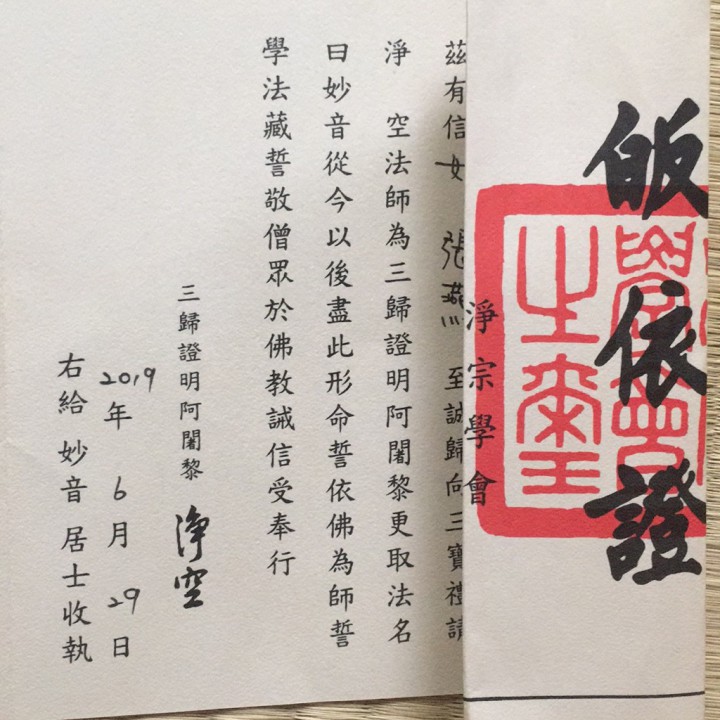 皈依證
淨宗學會
茲有信女 張燕 至誠歸向三寶禮請
淨 空法師為三歸證明阿闍黎更取法名
曰妙音從今以後盡此形命誓依佛為師誓
學法藏誓敬僧眾於佛教誡信受奉行
三歸證明阿闍黎 淨空
2019年 6月 29日
右給 妙音 居士收執